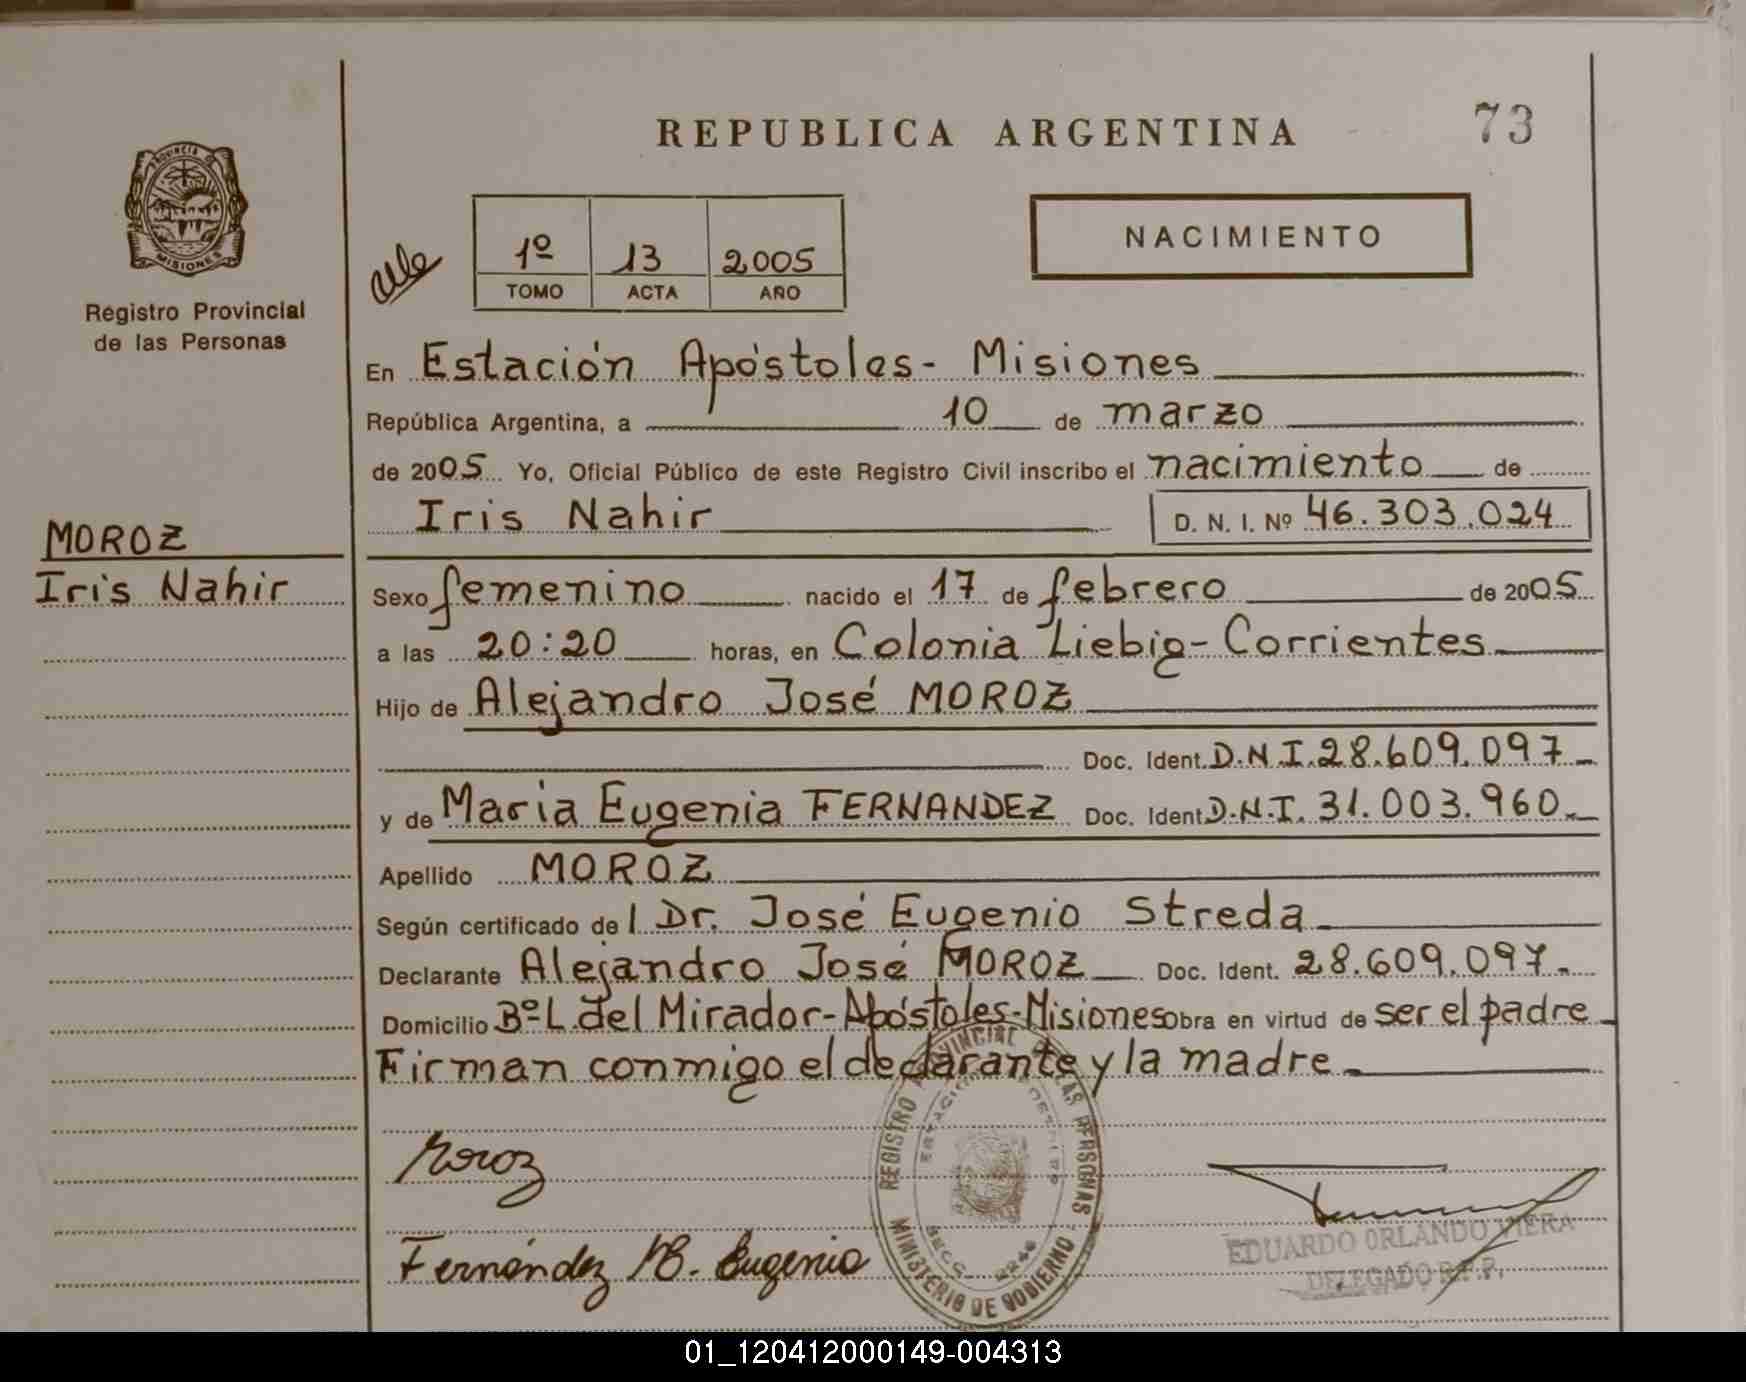 REPUBLICA ARGENTINA
73
PROVINCIA DE
MISIONES
Registro Provincial
de las Personas
1º 13 2005
TOMO ACTA AÑO
NACIMIENTO
En Estación Apóstoles - Misiones
República Argentina, a 10 de marzo
de 2005 Yo, Oficial Público de este Registro Civil inscribo el nacimiento de
Iris Nahir D. N. I. Nº 46.303.024
MOROZ
Iris Nahir
Sexo femenino nacido el 17 de febrero de 2005
a las 20:20 horas, en Colonia Liebig - Corrientes
Hijo de Alejandro José MOROZ
Doc. Ident. D.N.I. 28.609.097
y de Maria Eugenia FERNANDEZ Doc. Ident D.N.I. 31.003.960
Apellido MOROZ
Según certificado de l Dr. José Eugenio Streda
Declarante Alejandro José MOROZ Doc. Ident. 28.609.097
Domicilio Bº L. del Mirador - Apóstoles - Misiones obra en virtud de ser el padre
Firman conmigo el declarante y la madre
Moroz
Fernández M. Eugenia
REGISTRO PROVINCIAL DE LAS PERSONAS
MINISTERIO DE GOBIERNO
EDUARDO ORLANDO VIERA
DELEGADO R.P.P.
01_120412000149-004313